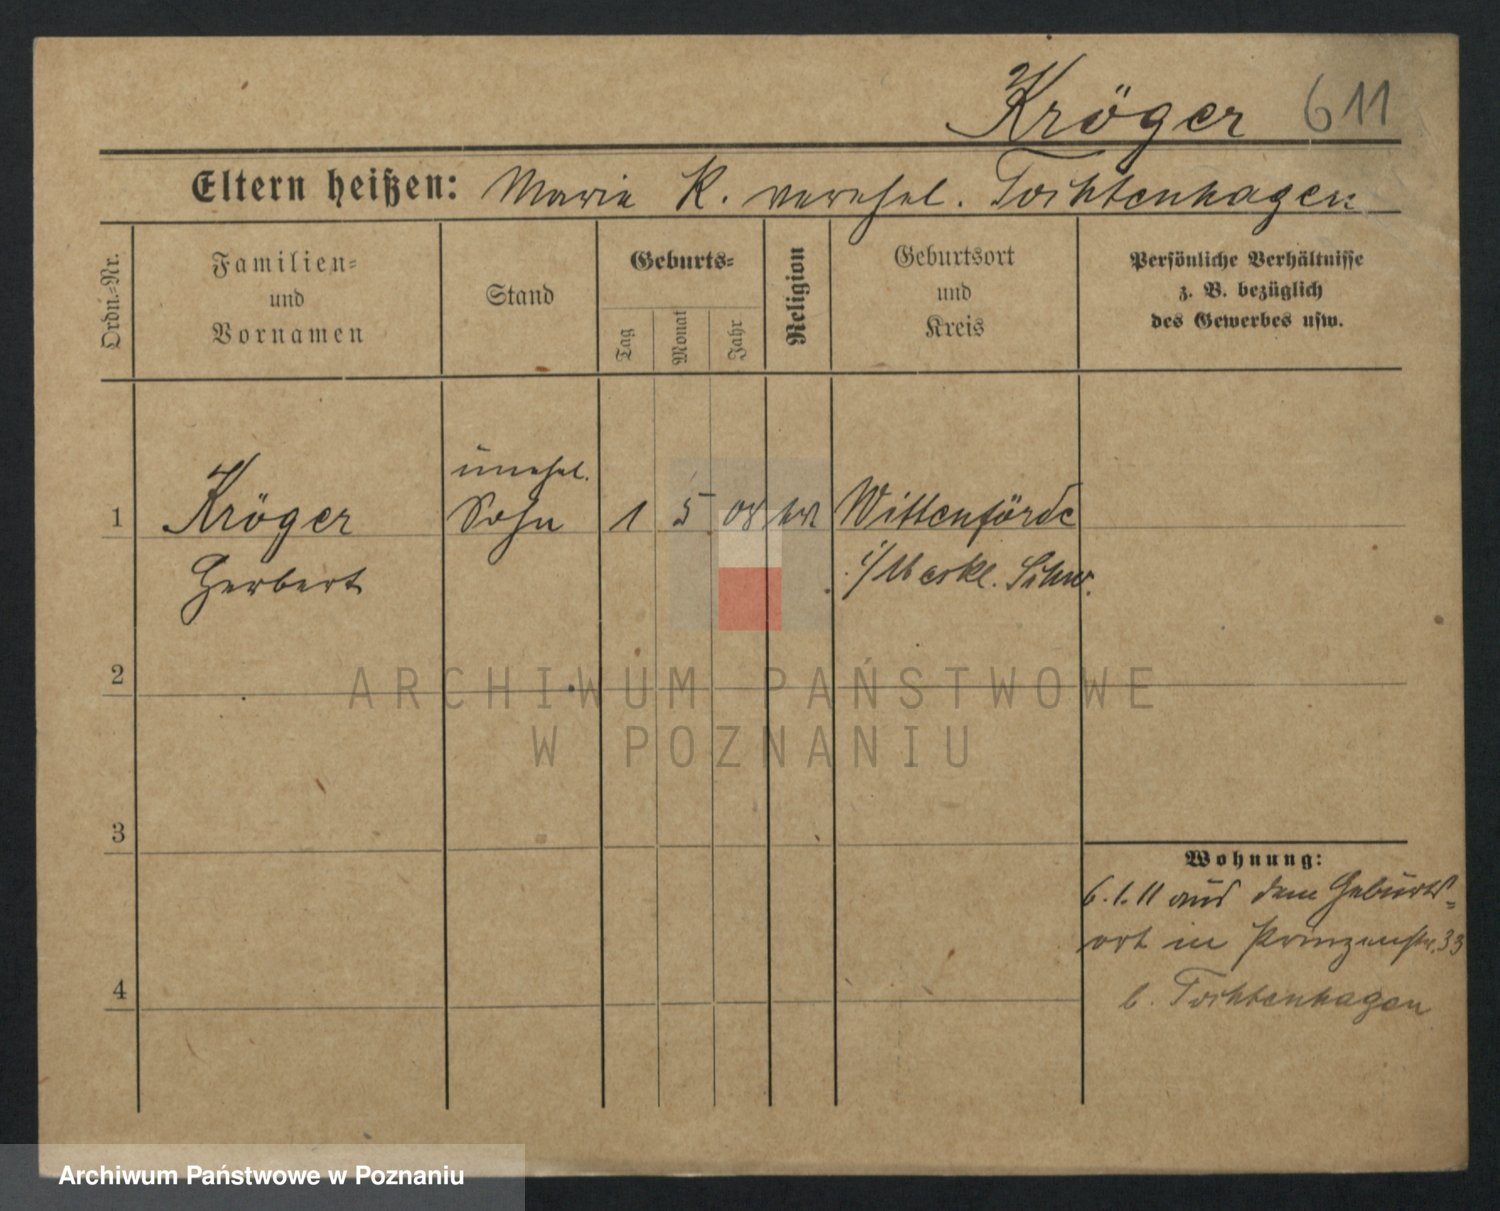 Kröger 611
Eltern heißen: Marie K. verehel. Tochtenhagen
Ordn.-Nr.
Familien-
und
Vornamen
Stand
Geburts-
Tag
Monat
Jahr
Religion
Geburtsort
und
Kreis
Persönliche Verhältnisse
z. B. bezüglich
des Gewerbes usw.
unehel.
1 Kröger Sohn 1 5 08 Wittenförde
Herbert i/Meckl. Schw.
2
3
4
Wohnung:
6.1.11 aus dem Geburts-
ort in Prinzenstr. 33
b. Tochtenhagen
ARCHIWUM PAŃSTWOWE
W POZNANIU
Archiwum Państwowe w Poznaniu